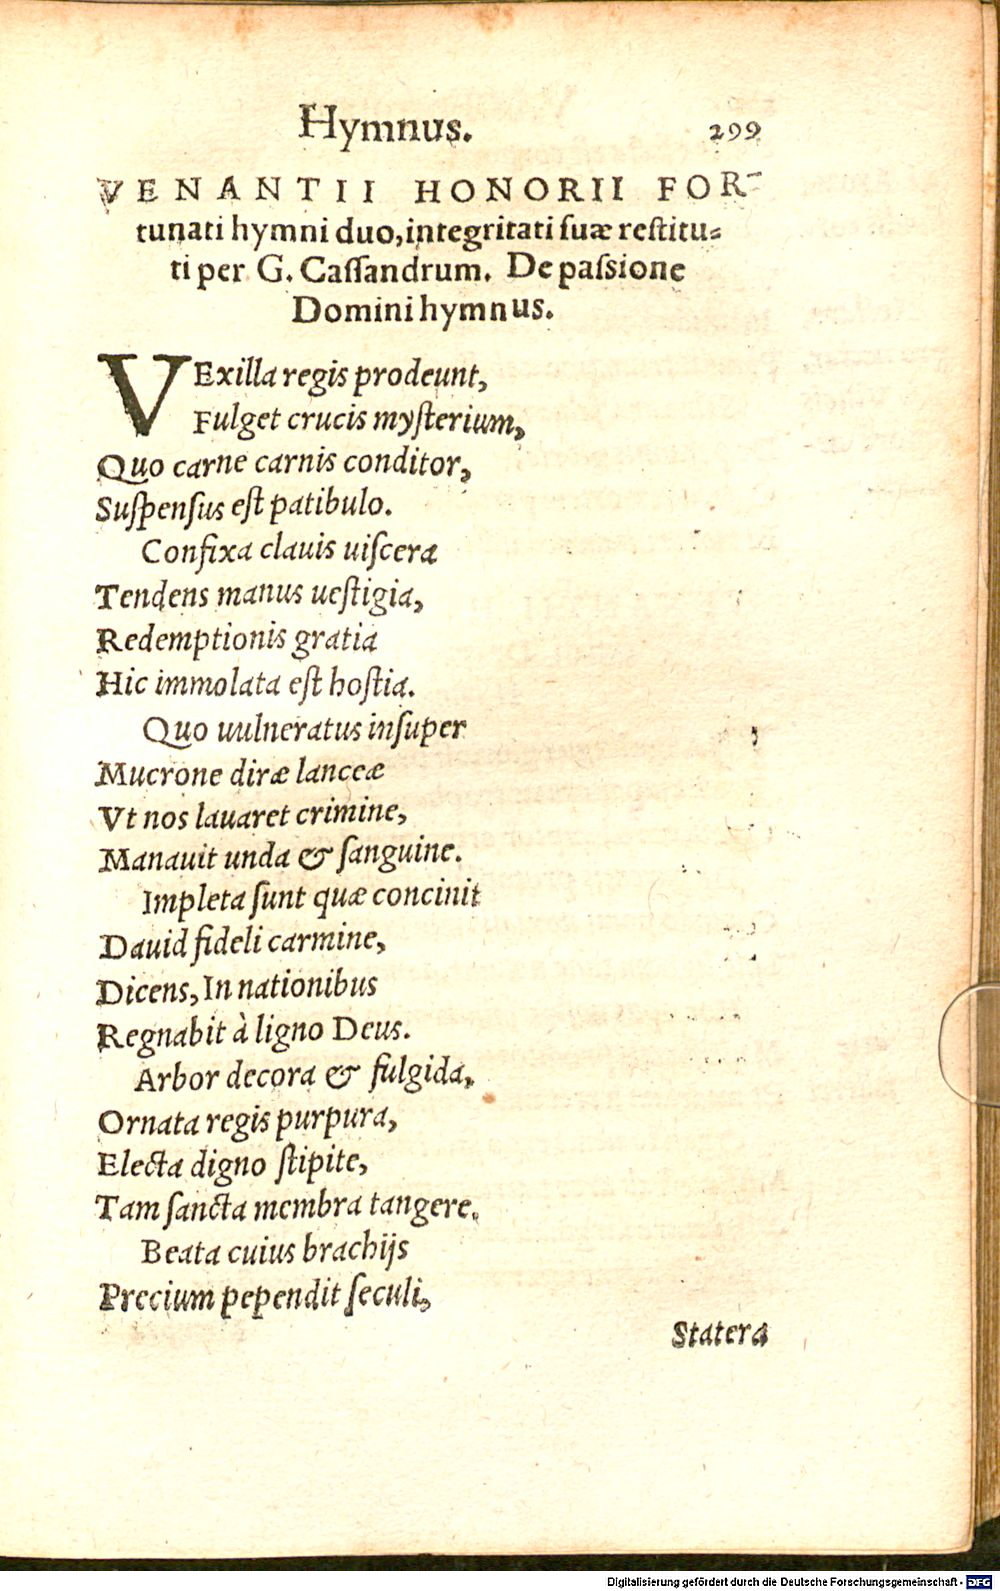 Hymnus. 299
VENANTII HONORII FOR-
tunati hymni duo, integritati suæ restitu-
ti per G. Cassandrum. De passione
Domini hymnus.
VExilla regis prodeunt,
Fulget crucis mysterium,
Quo carne carnis conditor,
Suspensus est patibulo.
Confixa clauis uiscera
Tendens manus uestigia,
Redemptionis gratia
Hic immolata est hostia.
Quo uulneratus insuper
Mucrone diræ lanceæ
Vt nos lauaret crimine,
Manauit unda & sanguine.
Impleta sunt quæ concinit
Dauid fideli carmine,
Dicens, In nationibus
Regnabit à ligno Deus.
Arbor decora & fulgida,
Ornata regis purpura,
Electa digno stipite,
Tam sancta membra tangere.
Beata cuius brachijs
Precium pependit seculi,
Statera
Digitalisierung gefördert durch die Deutsche Forschungsgemeinschaft - DFG